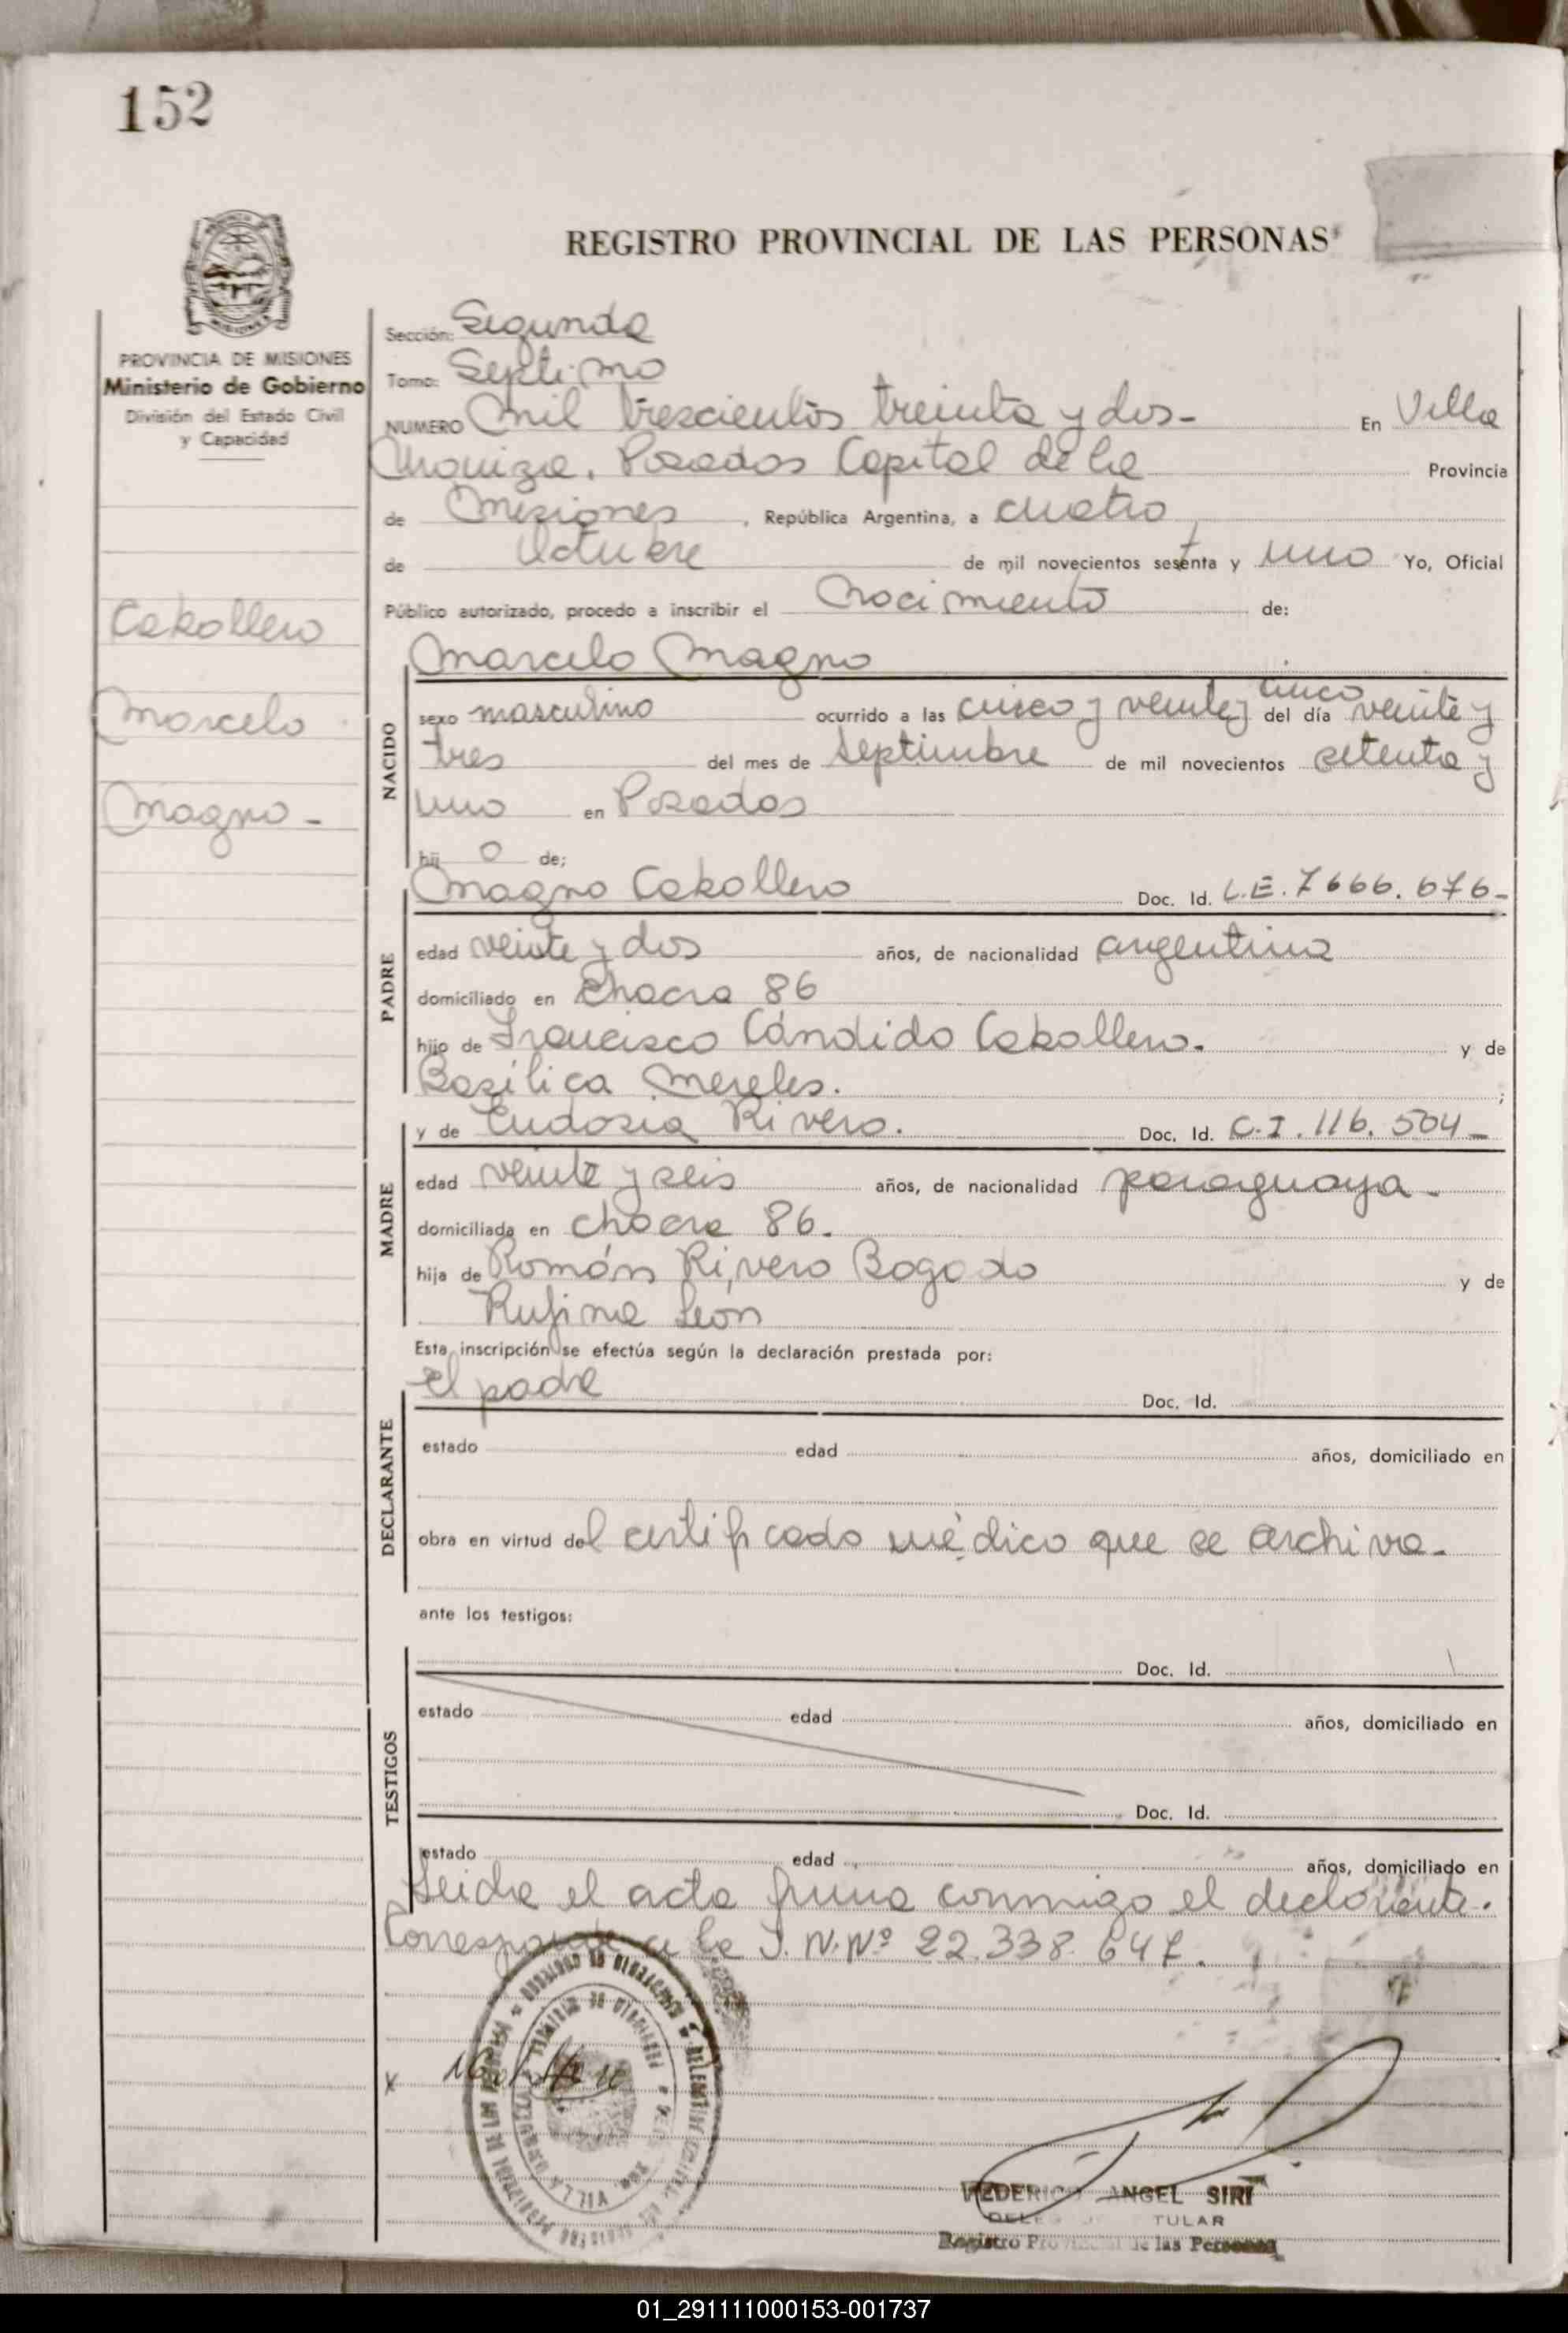 152
REGISTRO PROVINCIAL DE LAS PERSONAS
PROVINCIA DE MISIONES
Ministerio de Gobierno
División del Estado Civil
y Capacidad
Caballero
Marcelo
Magno -
Sección: Segunda
Tomo: Septimo
NUMERO Mil trescientos treinta y dos - En Villa
Urquiza. Posadas Capital de la Provincia
de Misiones, República Argentina, a cuatro
de Octubre de mil novecientos sesenta y uno Yo, Oficial
Público autorizado, procedo a inscribir el Nacimiento de:
Marcelo Magno
NACIDO
sexo masculino ocurrido a las cinco y veinte y cinco del día veinte y
tres del mes de septiembre de mil novecientos setenta y
uno en Posadas
hij o de;
PADRE
Magno Caballero Doc. Id. L.E. 7666.676-
edad veinte y dos años, de nacionalidad argentina
domiciliado en Chacra 86
hijo de Francisco Cándido Caballero. y de
Basílica Mereles. ;
MADRE
y de Eudosia Rivero. Doc. Id. C.I. 116.504-
edad veinte y seis años, de nacionalidad paraguaya -
domiciliada en chacra 86.
hija de Román Rivero Bogado y de
Rufina León
Esta inscripción se efectúa según la declaración prestada por:
DECLARANTE
el padre Doc. Id.
estado edad años, domiciliado en
obra en virtud del certificado médico que se archiva.
ante los testigos:
TESTIGOS
Doc. Id.
estado edad años, domiciliado en
Doc. Id.
estado edad años, domiciliado en
Leida el acta firma conmigo el declarante.
Corresponde a la I. N. Nº 22.338.647.
x
FEDERICO ANGEL SIRI
TULAR
Registro Provincial de las Personas
01_291111000153-001737